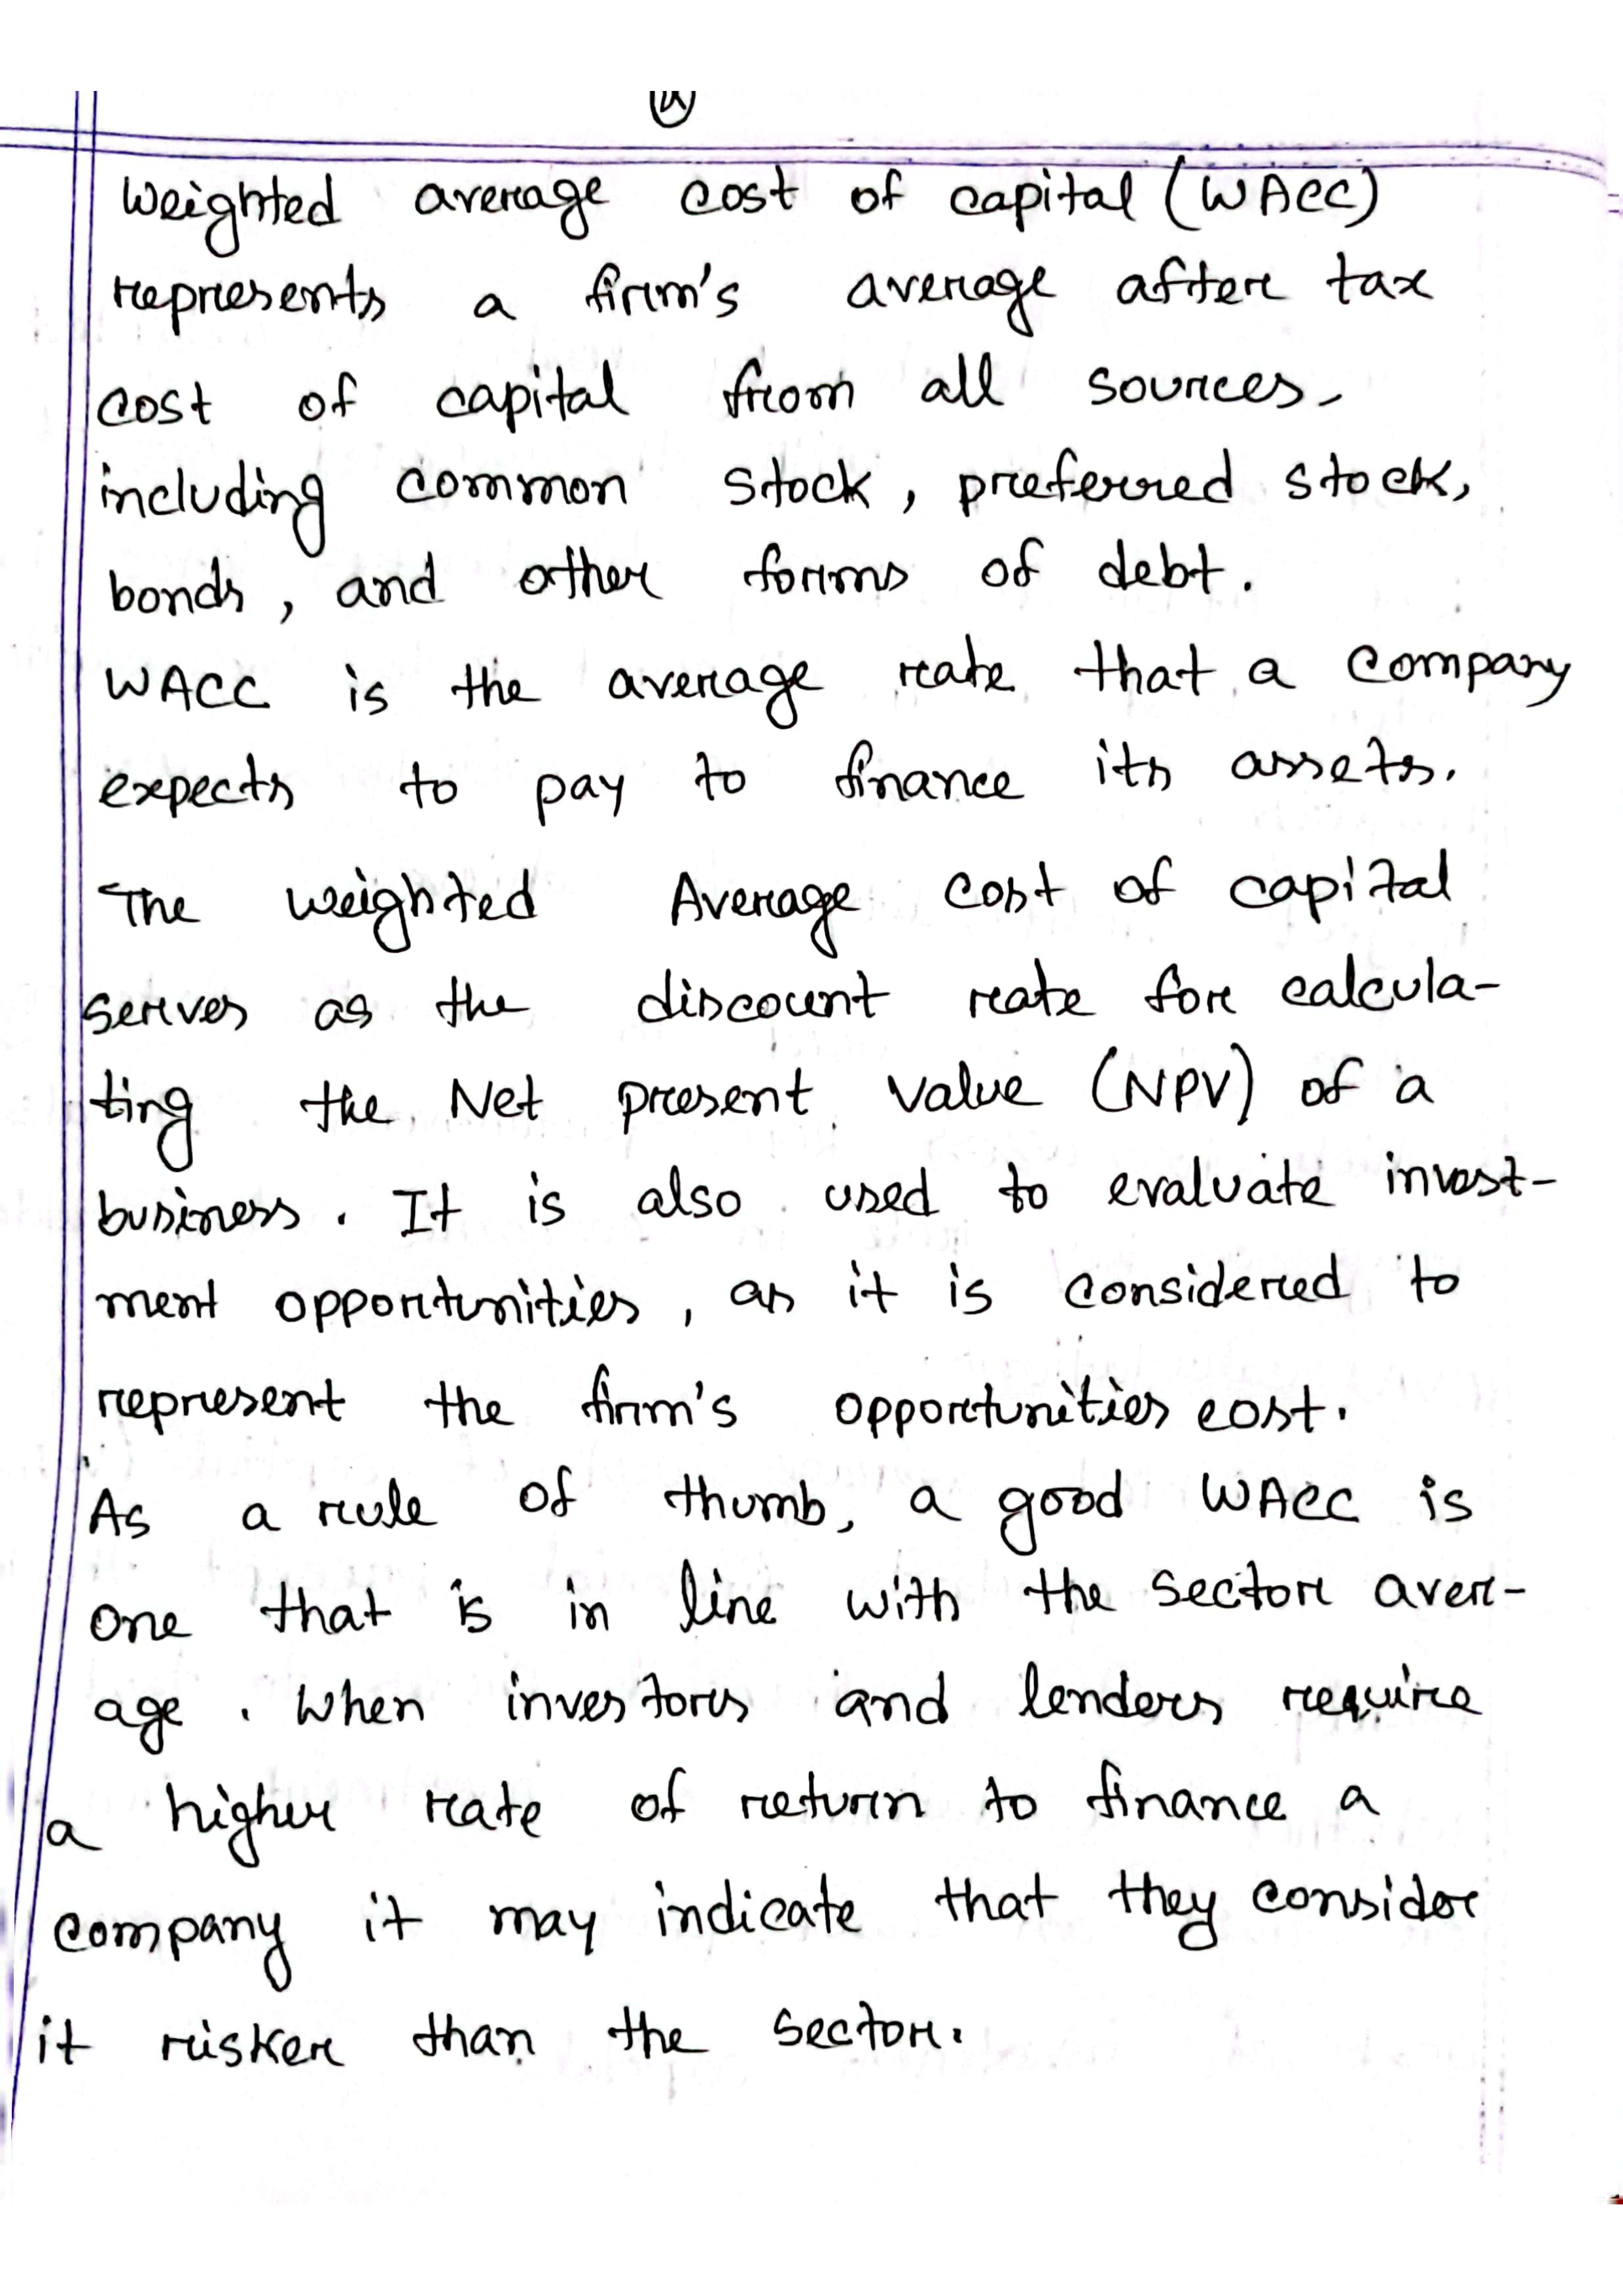 Weighted average cost of capital (WACC)
represents a firm's average after tax
cost of capital from all sources,
including common stock, preferred stock,
bonds, and other forms of debt.
WACC is the average rate that a company
expects to pay to finance its assets.
The weighted Average cost of capital
serves as the discount rate for calcula-
ting the Net present value (NPV) of a
business. It is also used to evaluate invest-
ment opportunities, as it is considered to
represent the firm's opportunities cost.
As a rule of thumb, a good WACC is
one that is in line with the sector aver-
age. When investors and lenders require
a higher rate of return to finance a
company it may indicate that they consider
it risker than the sector.